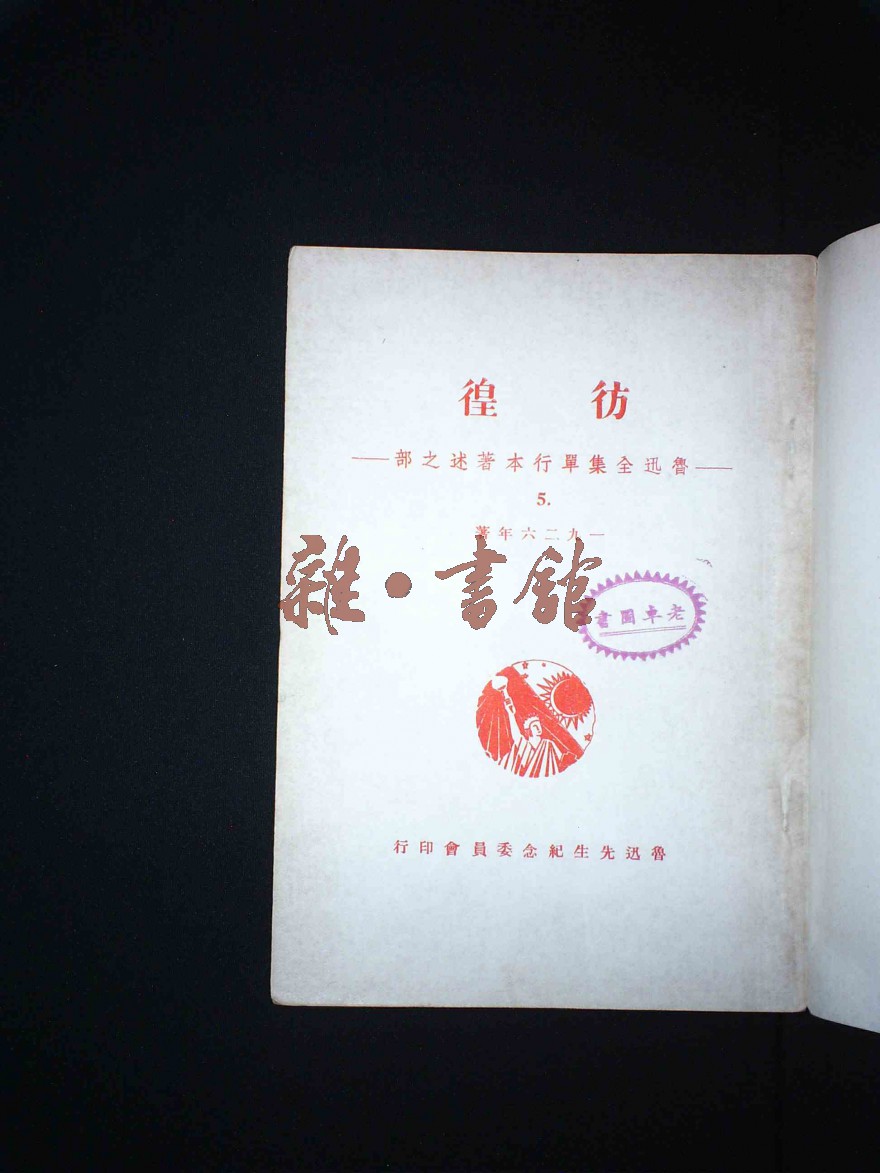 彷徨
——魯迅全集單行本著述之部——
5.
一九二六年著
雜·書館
老車圖書
魯迅先生紀念委員會印行